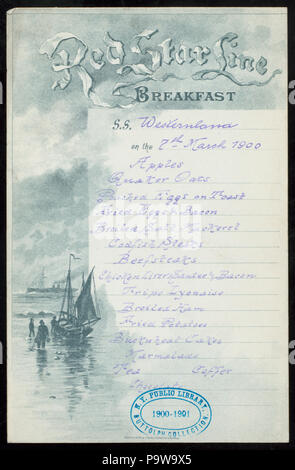 Red Star Line
BREAKFAST
S.S. Westernland
on the 7th March 1900
Apples
Quaker Oats
Poached Eggs on Toast
Fried Eggs Bacon
Broiled Salt Mackerel
Codfish Steaks
Beefsteaks
Chicken Liver Sauteed Bacon
Tripe Lyonaise
Broiled Ham
Fried Potatoes
Buckwheat Cakes
Marmalade
Tea Coffee
N.Y. PUBLIC LIBRARY
1900-1901
BUTTOLPH COLLECTION.
alamy
Image ID: P9W9X5
www.alamy.com